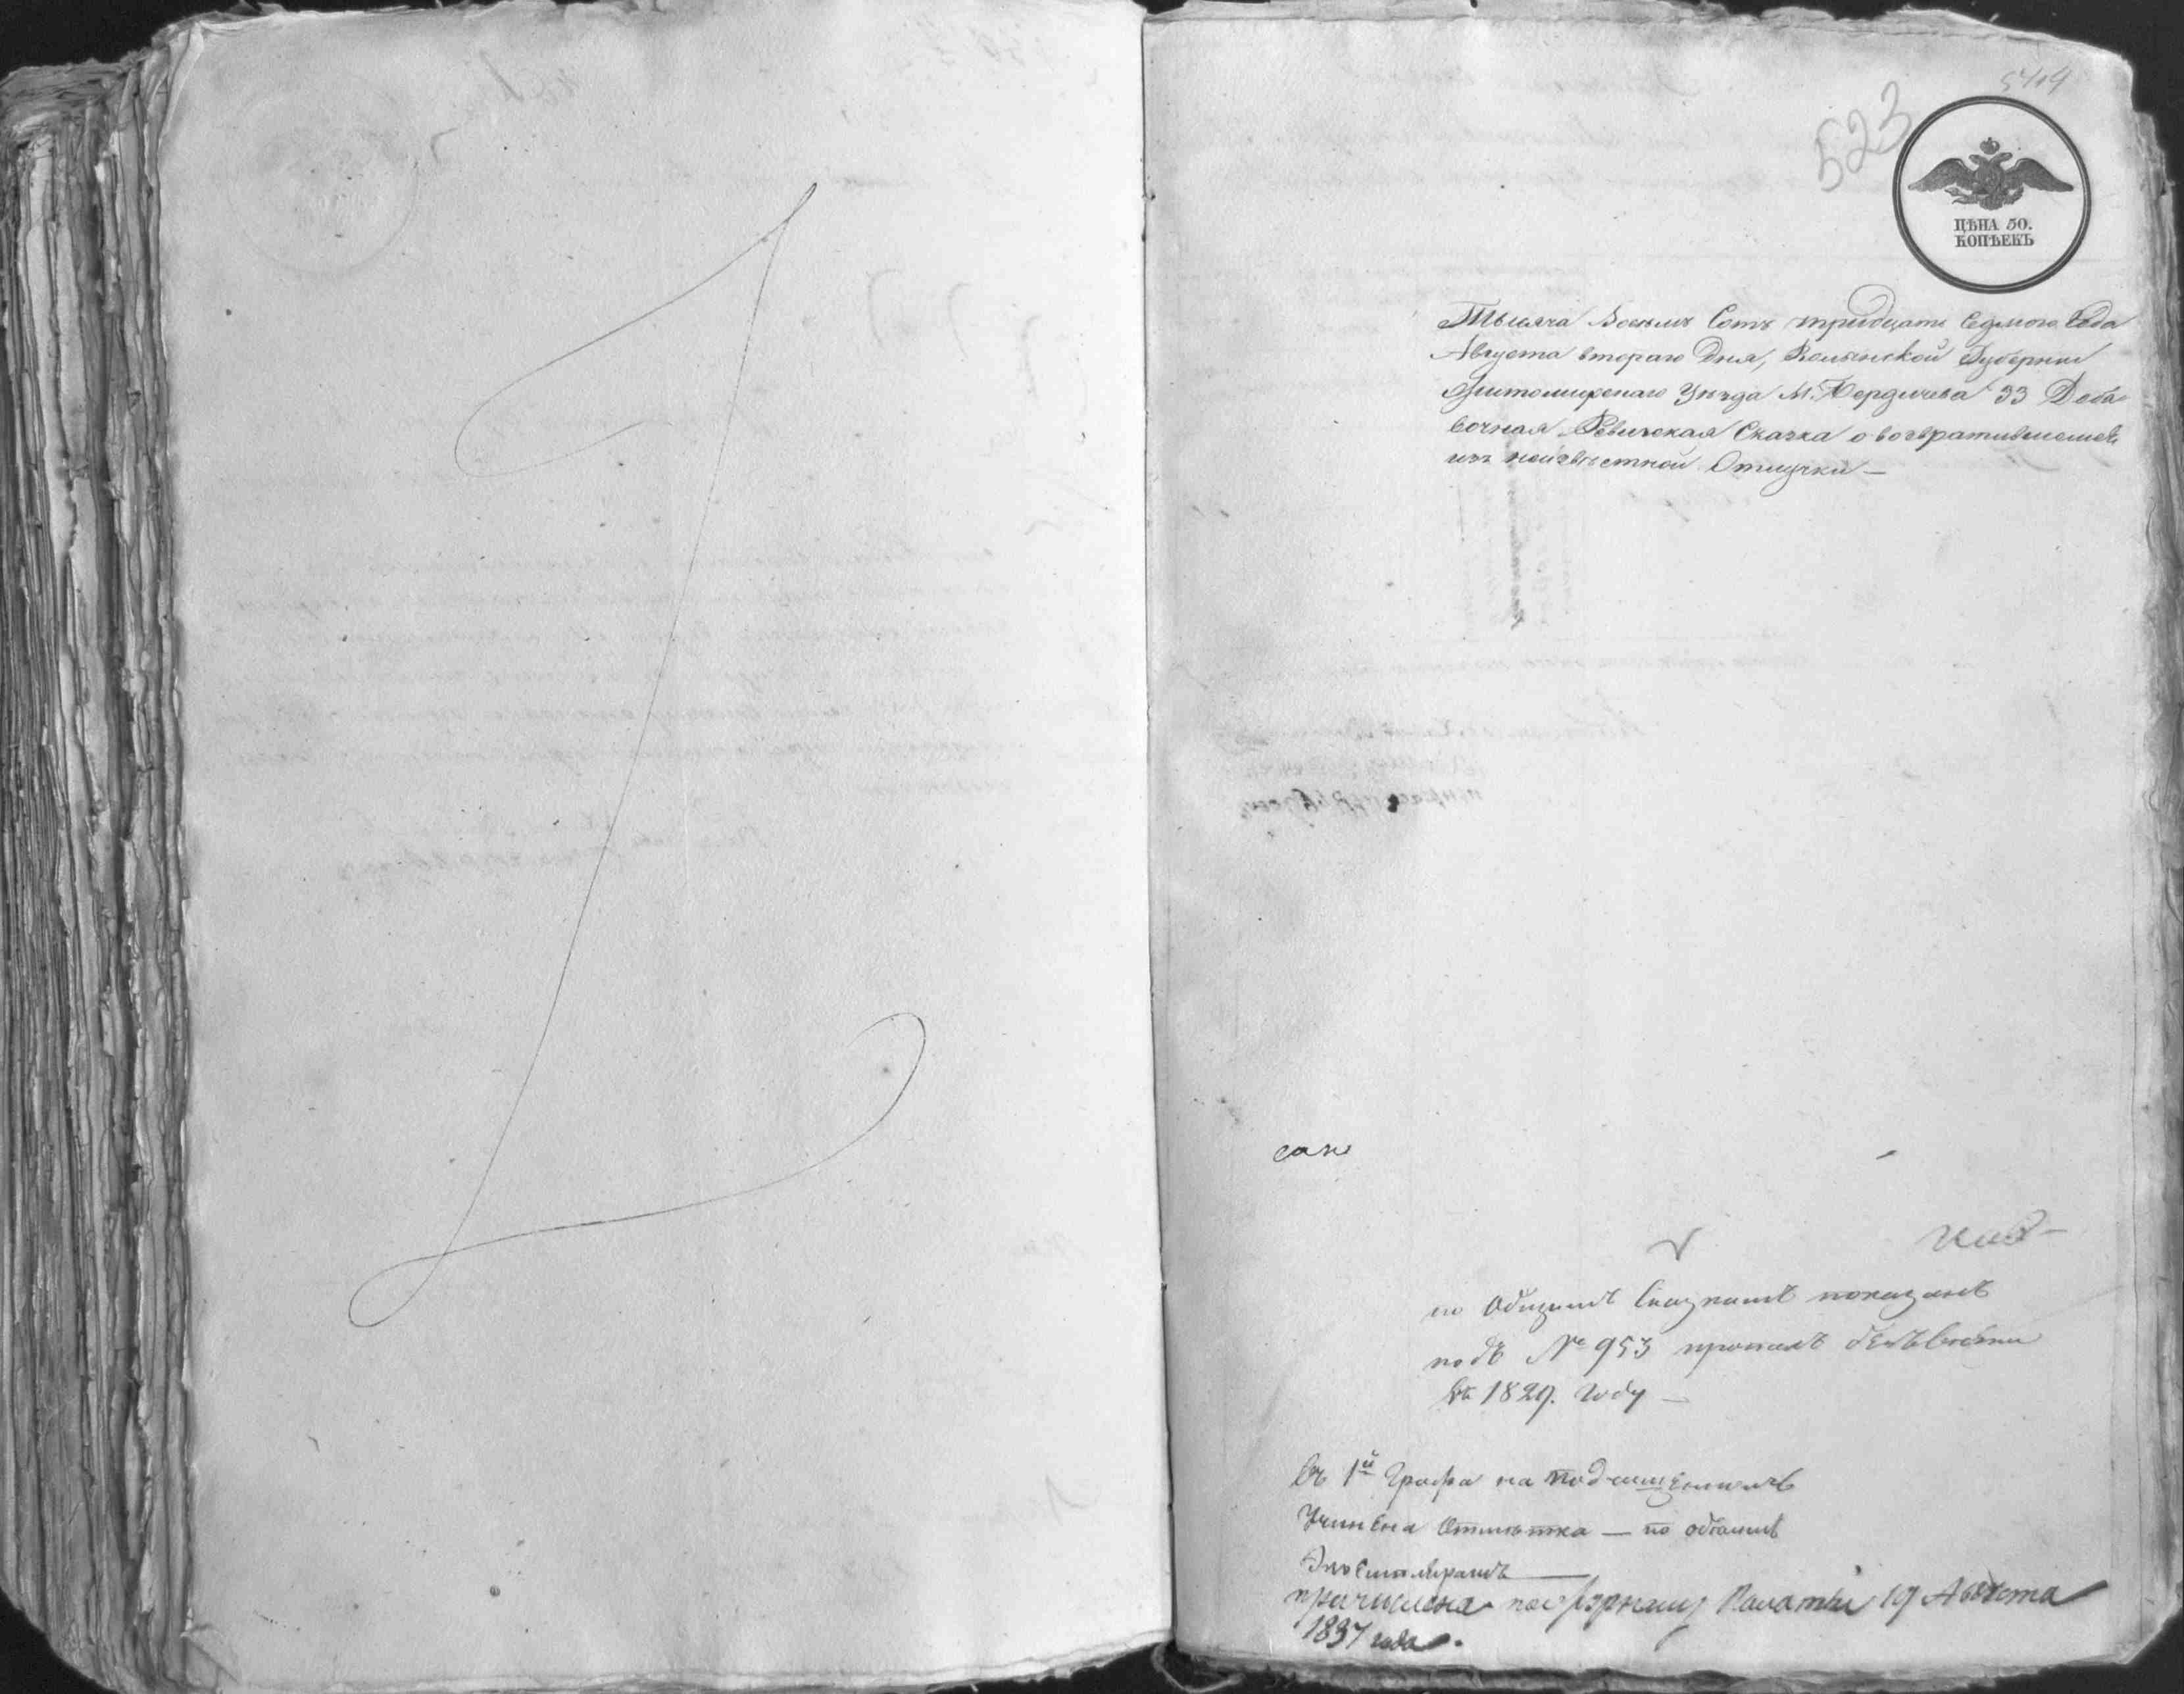 523
ЦѢНА 50.
КОПѢЕКЪ
Тысяча Восемь Сотъ тридцать Седмого Года
Августа втораго Дня, Волынской Губернии
Житомирскаго Уѣзда М. Бердичева 33 Доба-
вочная Ревижская Сказка о возвратившемся
изъ неизвѣстной Отлучки —
по Общимъ Сказкамъ показанъ
подъ № 953 пропалъ безъ вѣсти
въ 1829. Году —
въ 1й Графа на подлинномъ
Учинена Отмѣтка — по обоимъ
Экземплярамъ
причислена по журналу Палаты 19 Августа
1837 года.